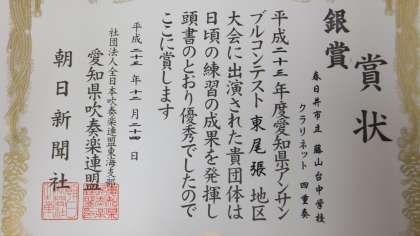 賞状
銀賞
春日井市立 藤山台中学校
クラリネット 四重奏
平成二十三年度愛知県アンサン
ブルコンテスト 東尾張 地区
大会に出演された貴団体は
日頃の練習の成果を発揮し
頭書のとおり優秀でしたので
ここに賞します
平成二十三年十二月二十四日
社団法人全日本吹奏楽連盟東海支部
愛知県吹奏楽連盟
朝日新聞社